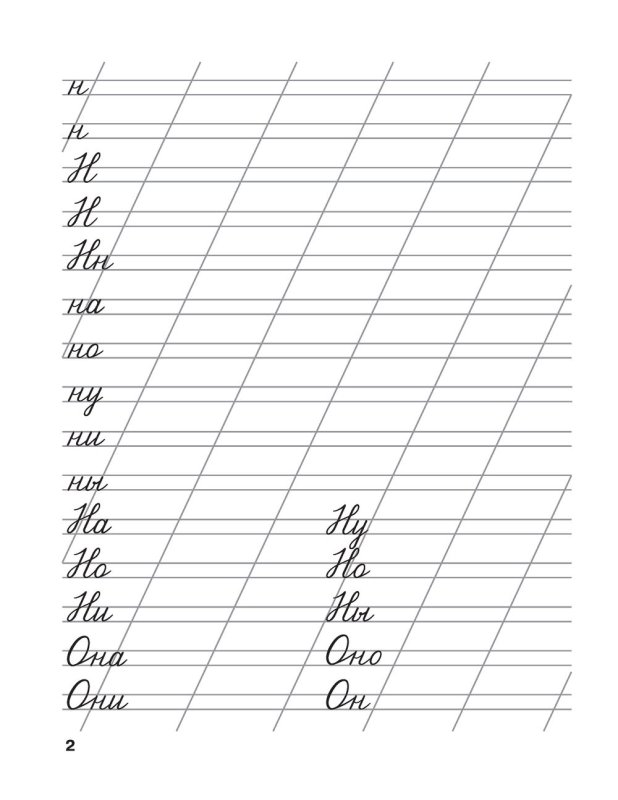 н
н
Н
Н
Нн
на
но
ну
ни
ны
На Ну
Но Но
Ни Ны
Она Оно
Они Он
2